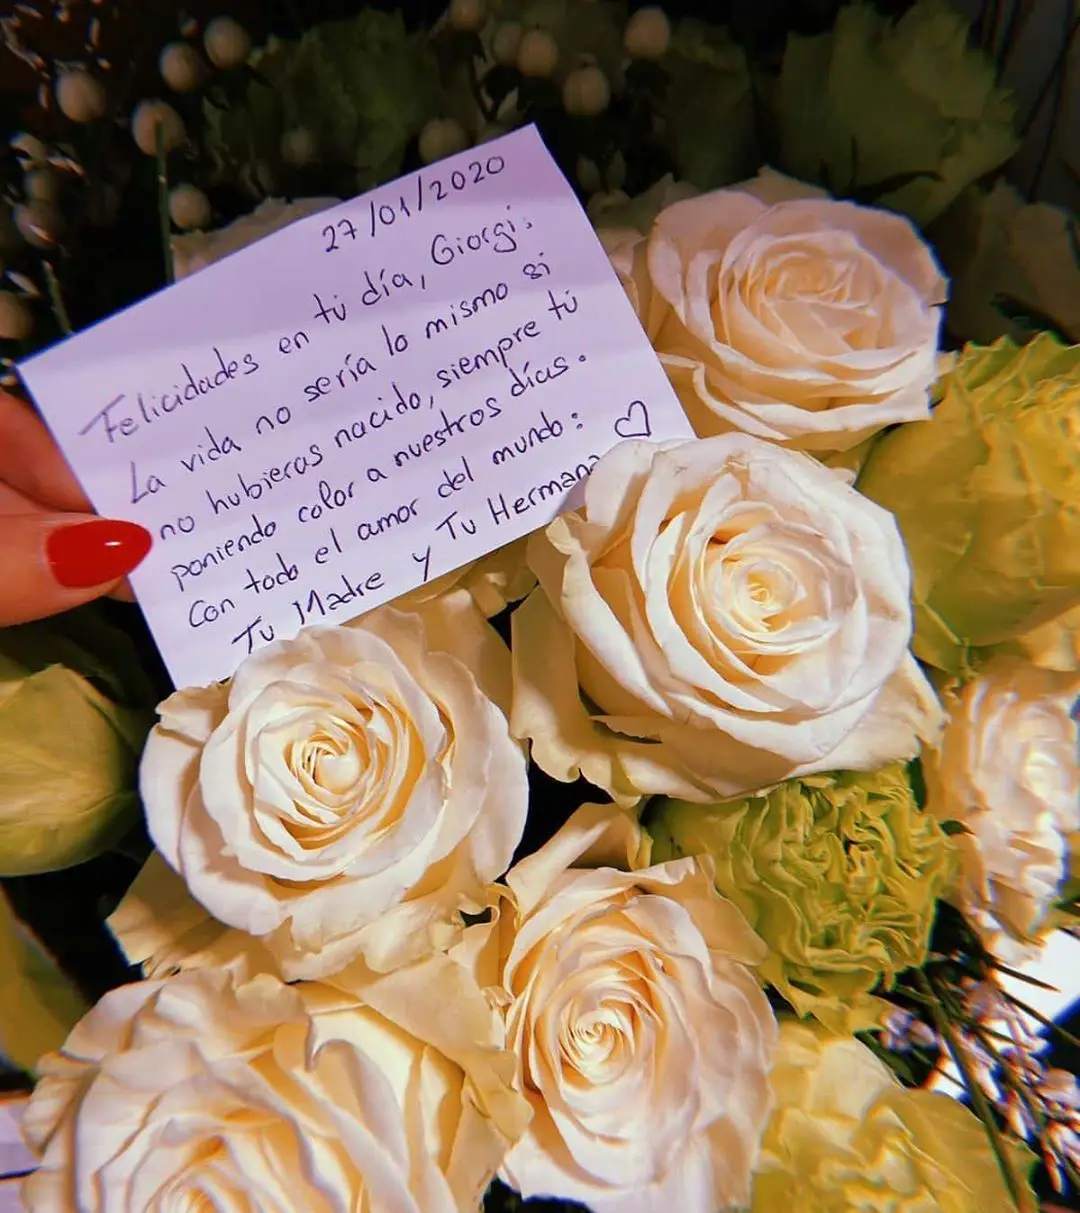 27/01/2020
Felicidades en tú día, Giorgi:
La vida no sería lo mismo si
no hubieras nacido, siempre tú
poniendo color a nuestros días.
Con todo el amor del mundo:
Tu Madre y Tu Hermana ♡